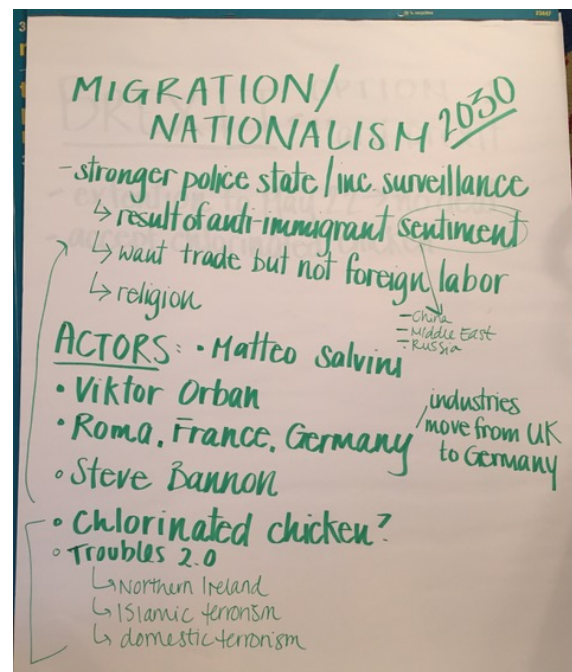 MIGRATION/
NATIONALISM 2030
- stronger police state/inc. surveillance
↳ result of anti-immigrant sentiment
↳ want trade but not foreign labor
↳ religion
- China
- Middle East
- Russia
ACTORS: • Matteo Salvini
• Viktor Orban
• Roma, France, Germany
industries
move from UK
to Germany
• Steve Bannon
• Chlorinated chicken?
• Troubles 2.0
↳ Northern Ireland
↳ Islamic terrorism
↳ domestic terrorism